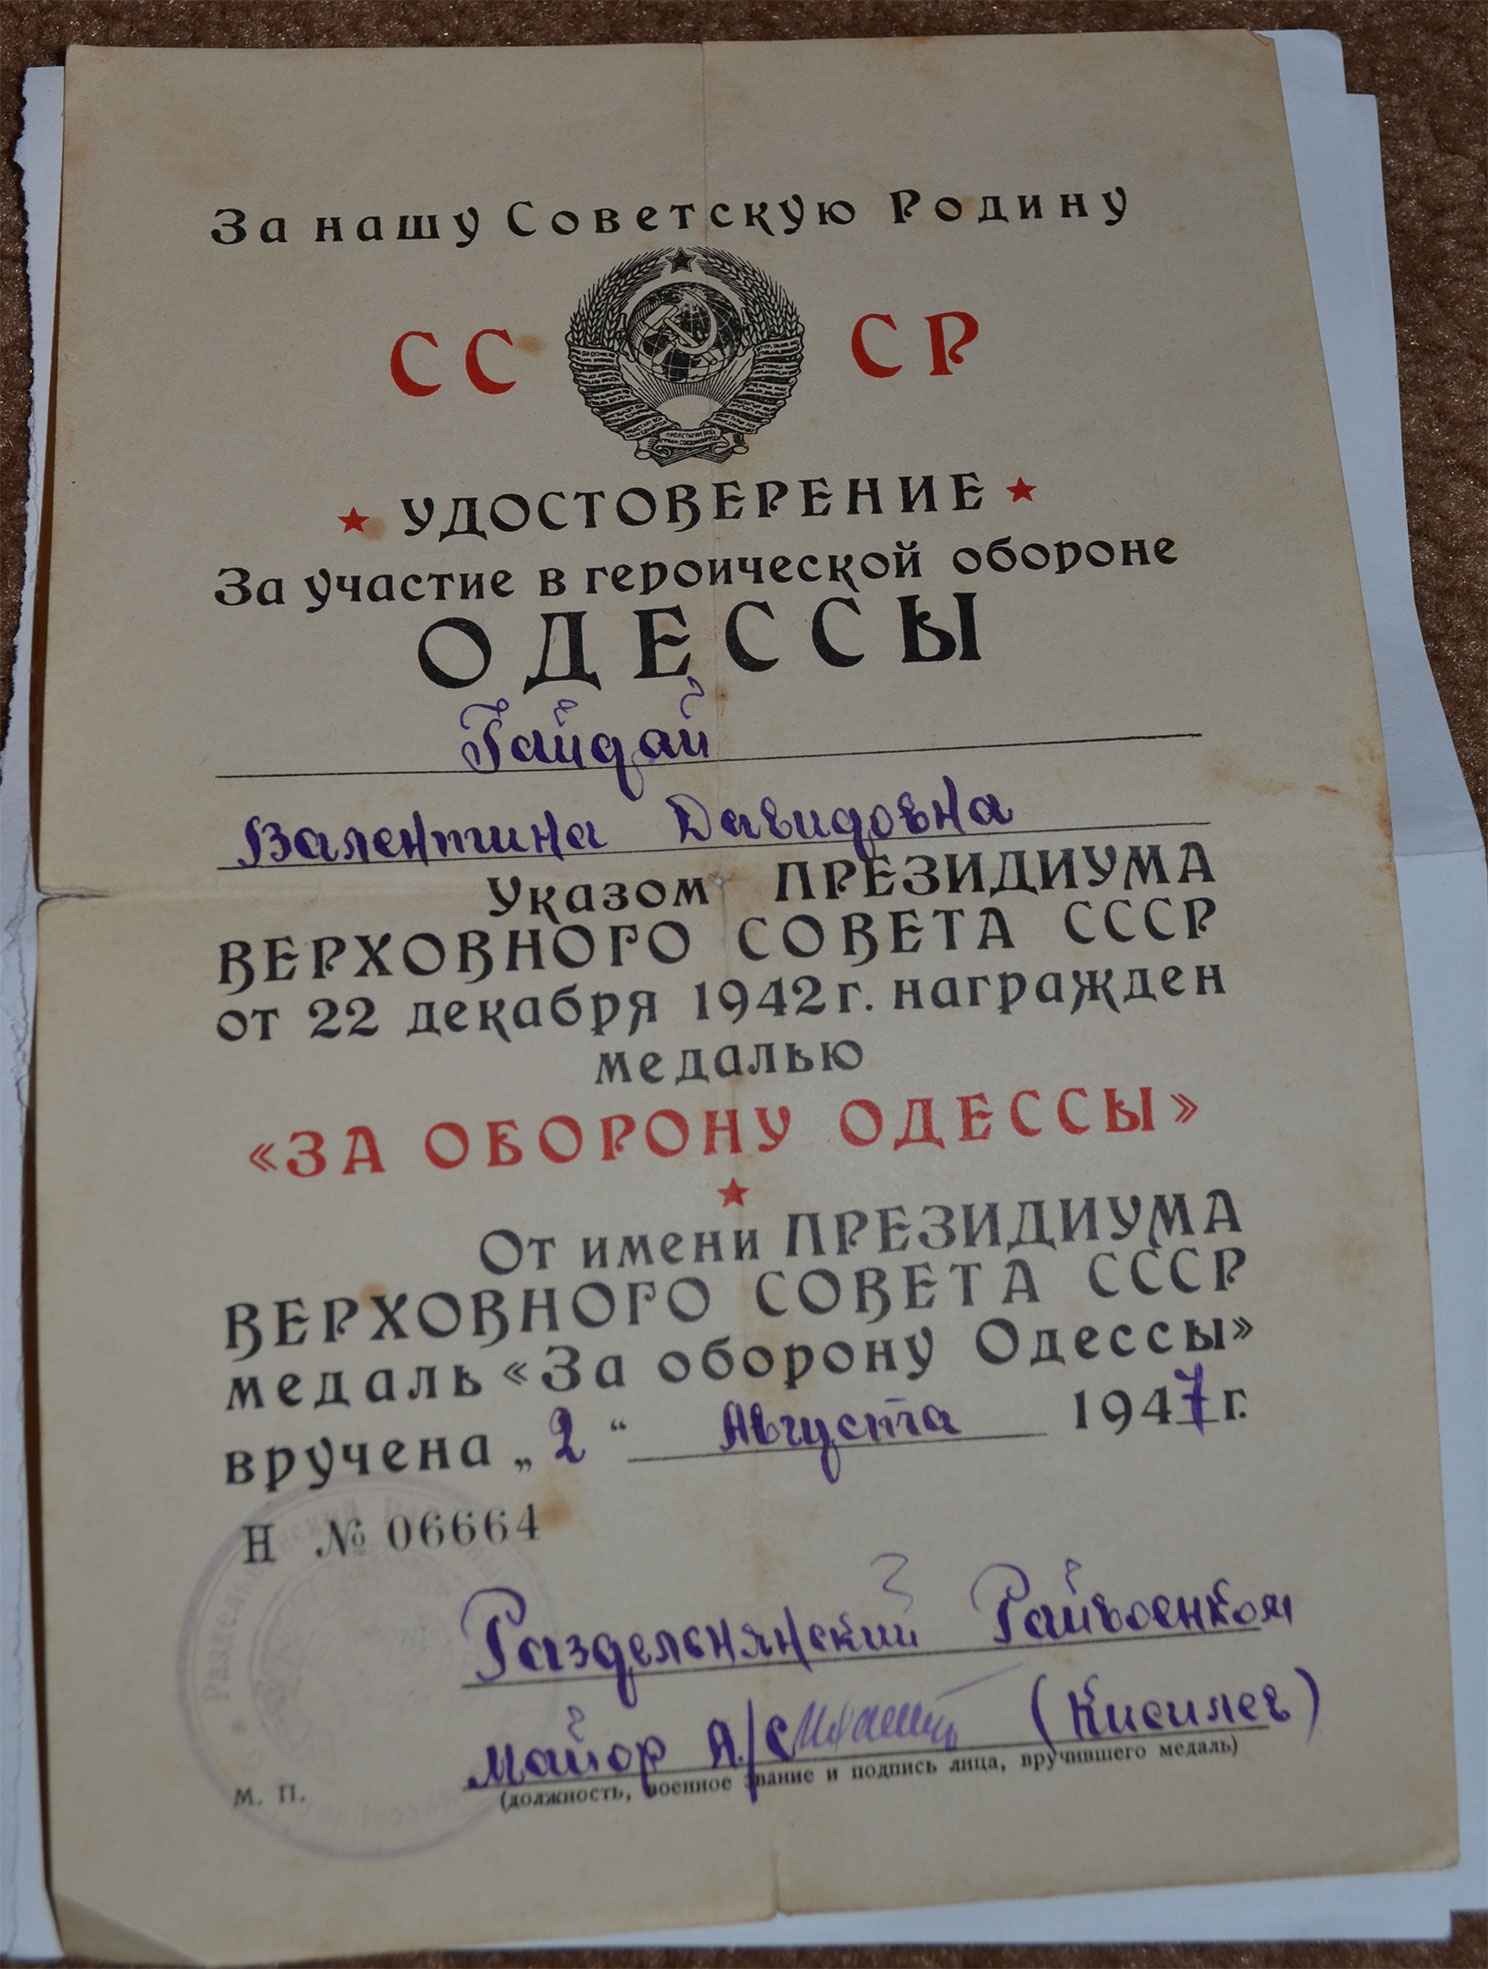 За нашу Советскую Родину
СС СР
УДОСТОВЕРЕНИЕ
За участие в героической обороне
ОДЕССЫ
Гайдай
Валентина Давидовна
Указом ПРЕЗИДИУМА
ВЕРХОВНОГО СОВЕТА СССР
от 22 декабря 1942 г. награжден
медалью
«ЗА ОБОРОНУ ОДЕССЫ»
От имени ПРЕЗИДИУМА
ВЕРХОВНОГО СОВЕТА СССР
медаль «За оборону Одессы»
вручена „2“ Августа 1947 г.
Н № 06664
Разделенянский Райвоенком
майор А/С (Кисилев)
М. П. (должность, военное звание и подпись лица, вручившего медаль)